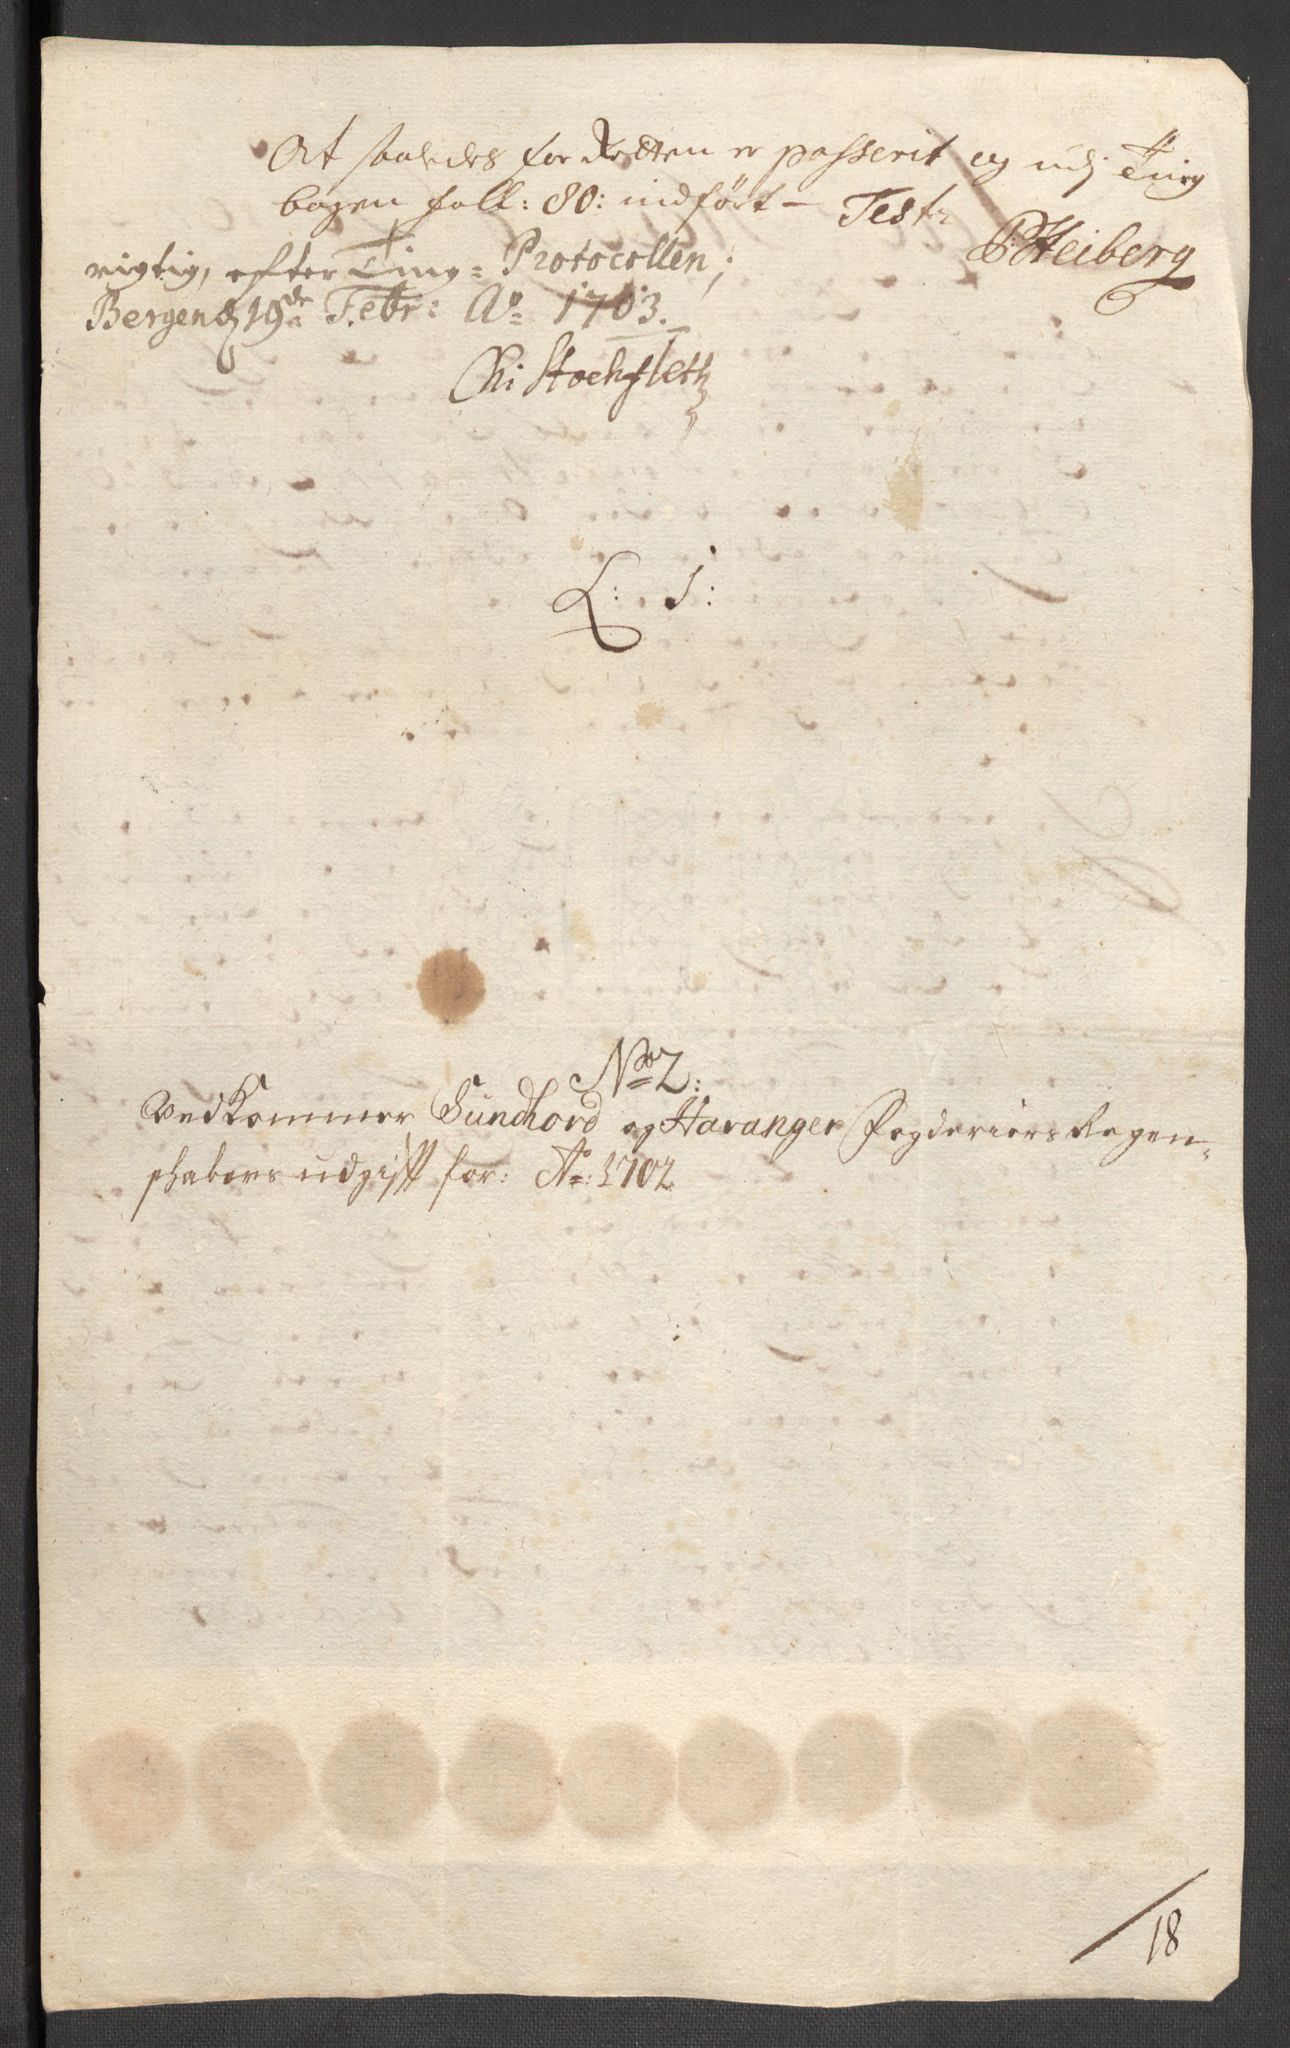 At saaledes for Retten er passerit og udj Ting
bogen foll: 80: indfört — Test:
PHeiberg
rigtig, efter Ting= Protocollen;
Bergen d 19de Febr: Ao 1703.
Chr Stockfleth
L: S:
No 2:
Vedkommer Sundhord og Haranger Fogderiers Regen-
skabers udgifft for: Ao: 1702
18